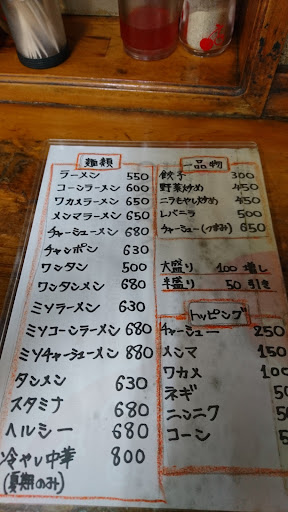 麺類
ラーメン 550
コーンラーメン 600
ワカメラーメン 650
メンマラーメン 650
チャーシューメン 680
チャンポン 630
ワンタン 500
ワンタンメン 680
ミソラーメン 630
ミソコーンラーメン 680
ミソチャーシューメン 880
タンメン 630
スタミナ 680
ヘルシー 680
冷やし中華 800
(夏期のみ)
一品物
餃子 300
野菜炒め 450
ニラもやし炒め 450
レバニラ 500
チャーシュー(つまみ) 650
大盛り 100 増し
半盛り 50 引き
トッピング
チャーシュー 250
メンマ 150
ワカメ 100
ネギ 50
ニンニク 50
コーン 50